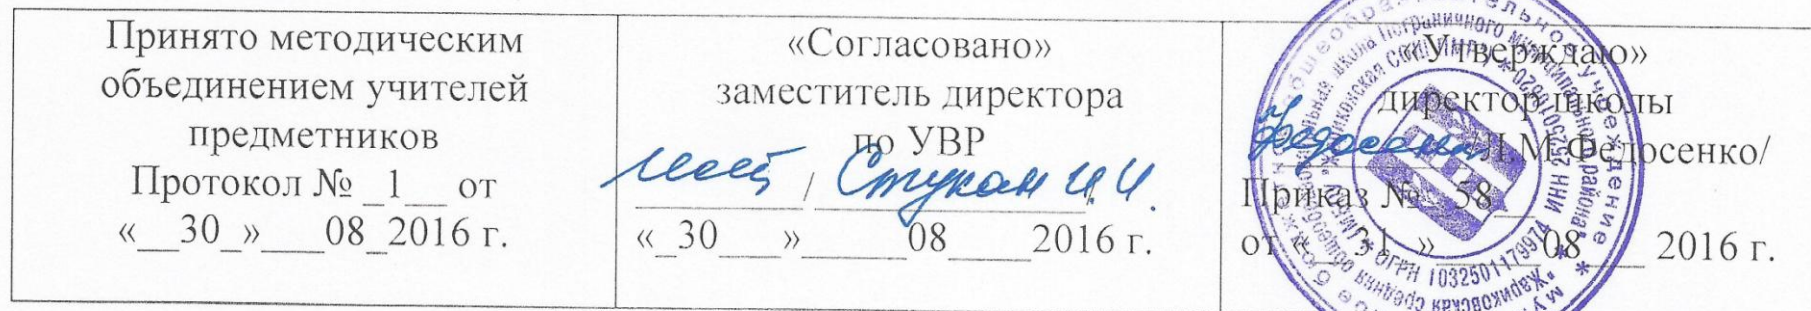 Принято методическим
объединением учителей
предметников
Протокол № _1__ от
«__30_»___08_2016 г.
«Согласовано»
заместитель директора
по УВР
_________/ Стукан И.И.
«_30___»_____08____2016 г.
«Утверждаю»
директор школы
Федосенко /Л.М.Федосенко/
Приказ №__58__
от «__31_»_____08___ 2016 г.
ОГРН 1032501179974 ИНН